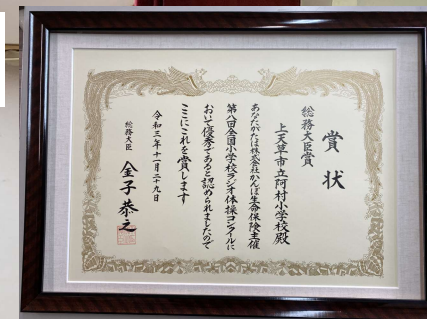 賞状
総務大臣賞
上天草市立阿村小学校殿
あなたがたは株式会社かんぽ生命保険主催
第八回全国小学校ラジオ体操コンクールに
おいて優秀であると認められましたので
ここにこれを賞します
令和三年十一月二十九日
総務大臣 金子恭之